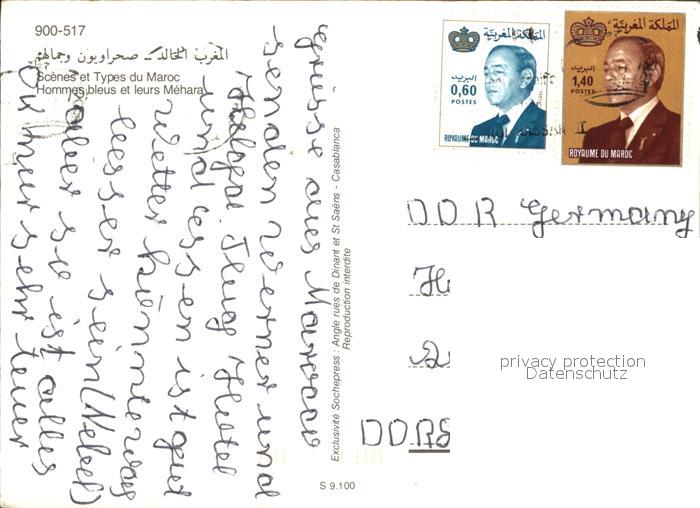 900-517
المغرب الخالد ـ صحراويون وجمالهم
Scènes et Types du Maroc
Hommes bleus et leurs Méhara
Grüsse aus Marocco
senden Werner und
Helga. Flug Hotel
und essen ist gut
Wetter könnte was
besser sein (Nebel)
aber so ist alles
OK nur sehr teuer
Exclusivité Sochepress : Angle rues de Dinant et St Saëns - Casablanca
Reproduction interdite
S 9.100
المملكة المغربية
البريد
0,60
POSTES
ROYAUME DU MAROC
المملكة المغربية
البريد
1,40
POSTES
ROYAUME DU MAROC
DDR Germany
H
DDR
privacy protection
Datenschutz